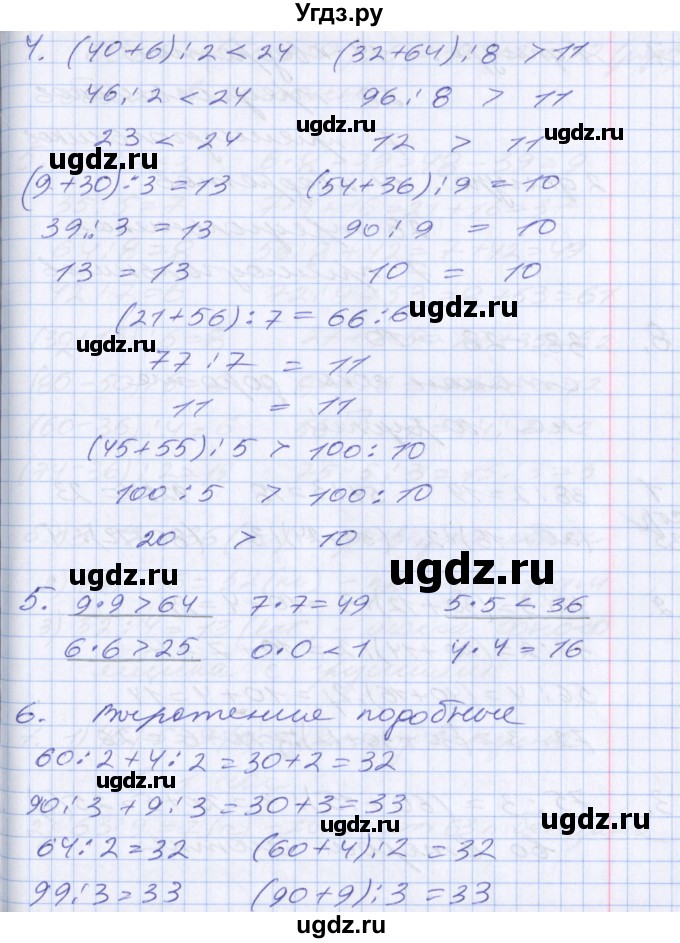 Угдз.ру
4. (40+6):2<24 (32+64):8>11
46:2<24 96:8>11
23<24 12>11
(9+30):3=13 (54+36):9=10
39:3=13 90:9=10
13=13 10=10
(21+56):7=66:6
77:7=11
11=11
(45+55):5>100:10
100:5>100:10
20>10
5. 9·9>64 7·7=49 5·5<36
6·6>25 0·0<1 4·4=16
6. Выражение подобные
60:2+4:2=30+2=32
90:3+9:3=30+3=33
64:2=32 (60+4):2=32
99:3=33 (90+9):3=33
ugdz.ru
ugdz.ru
ugdz.ru
ugdz.ru
ugdz.ru
ugdz.ru
ugdz.ru
ugdz.ru
ugdz.ru
ugdz.ru
ugdz.ru
ugdz.ru